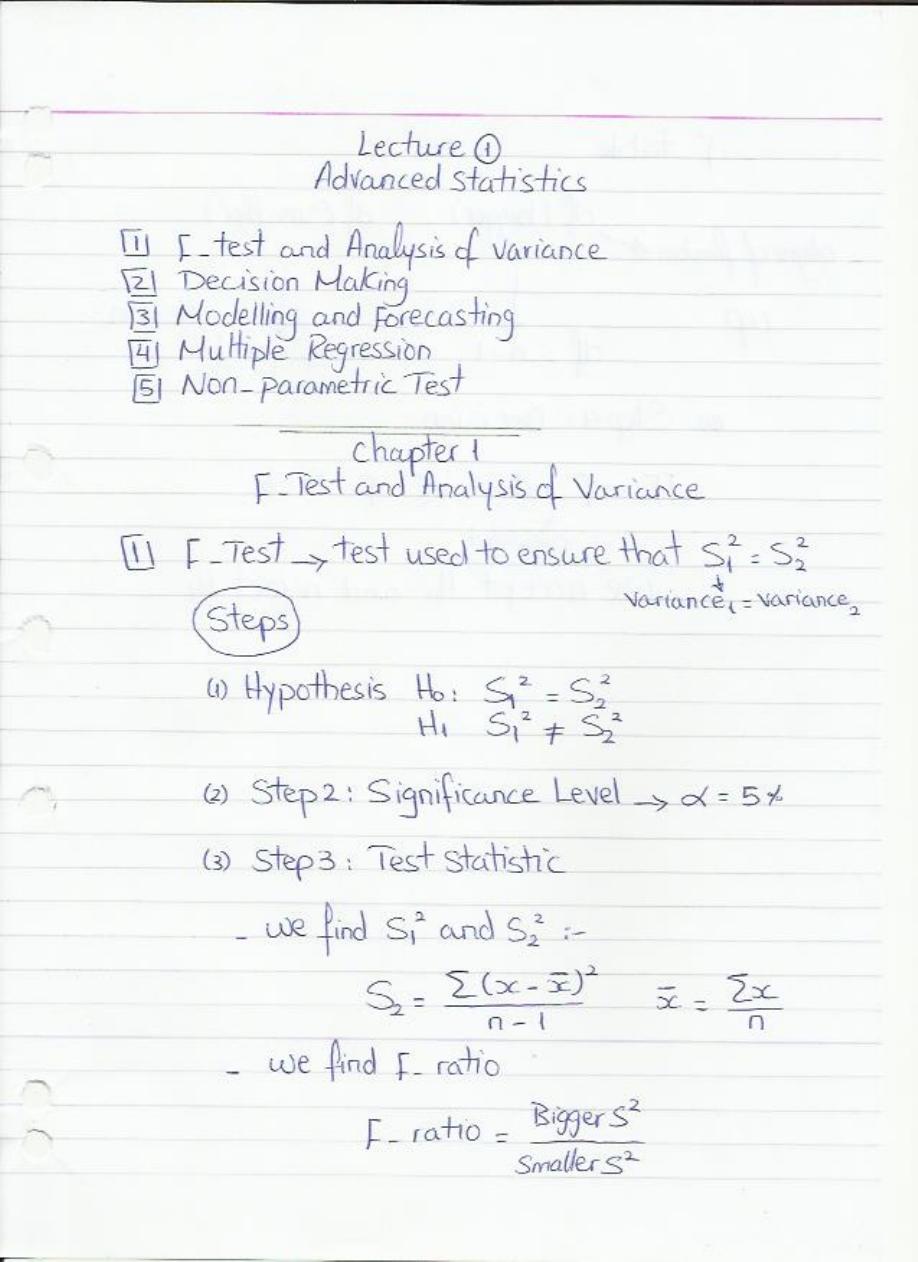 Lecture ①
Advanced Statistics
1 F_test and Analysis of variance
2 Decision Making
3 Modelling and Forecasting
4 Multiple Regression
5 Non_parametric Test
Chapter 1
F_Test and Analysis of Variance
1 F_Test → test used to ensure that S₁² = S₂²
variance₁ = variance₂
Steps
(1) Hypothesis H₀: S₁² = S₂²
H₁ S₁² ≠ S₂²
(2) Step2: Significance Level → α = 5%
(3) Step3: Test Statistic
_ we find S₁² and S₂² :-
S₂ = Σ(x - x̄)² / n - 1 x̄ = Σx / n
_ we find F_ ratio
F_ ratio = Bigger S² / Smaller S²